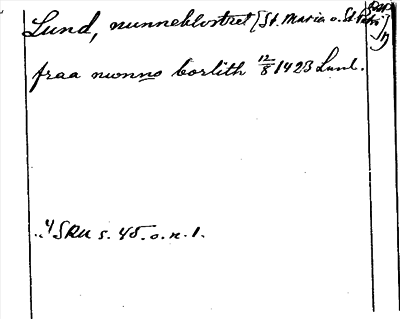 Lund, nunneklostret [St. Maria o. St. Petri]
fraa nunno borlith 12/8 1423 Lund.
SRU s. 45. o. n. 1.